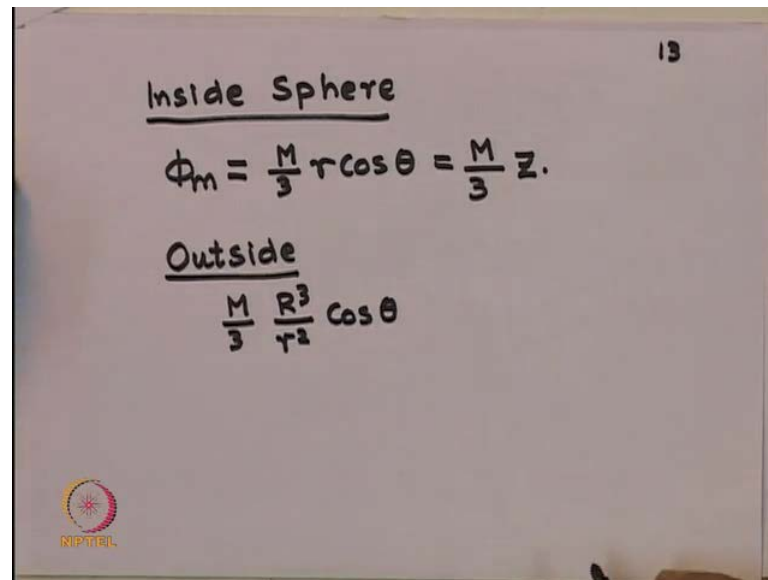 13
Inside Sphere
Φm = M/3 r cos θ = M/3 Z.
Outside
M/3 R³/r² Cos θ
NPTEL